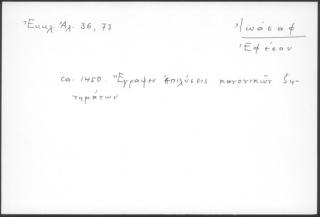 Ἐκκλ Ἀλ. 36, 73
Ἰωάσαφ
Ἐφέσου
ca. 1450. Ἔγραψεν ἐπιλύσεις κανονικῶν ζη-
τημάτων